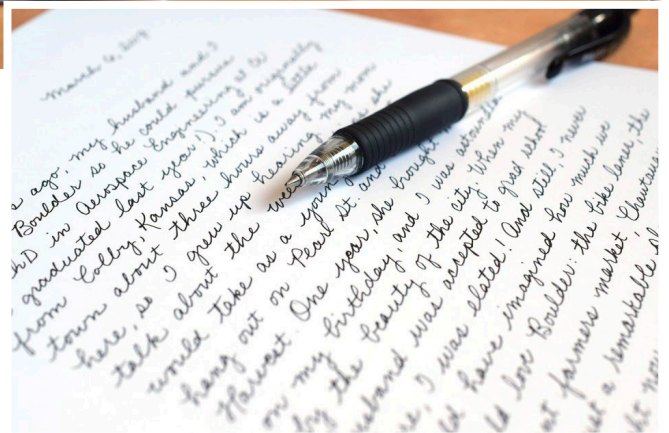 March 6, 2018
ago, my husband and I
Boulder so he could pursue
PhD in Aerospace Engineering at CU
graduated last year!). I am originally
from Colby, Kansas, which is a little
town about three hours away from
here, so I grew up hearing my mom
talk about the she
would take as a young
hang out on Pearl St. and
Harvest. One year, she brought
on my birthday and I was astounded
by the beauty of the city. When my
husband was accepted to grad school
I was elated! And still, I never
have imagined how much we
love Boulder: the bike lanes, the
farmers market, Chautauqua
a remarkable